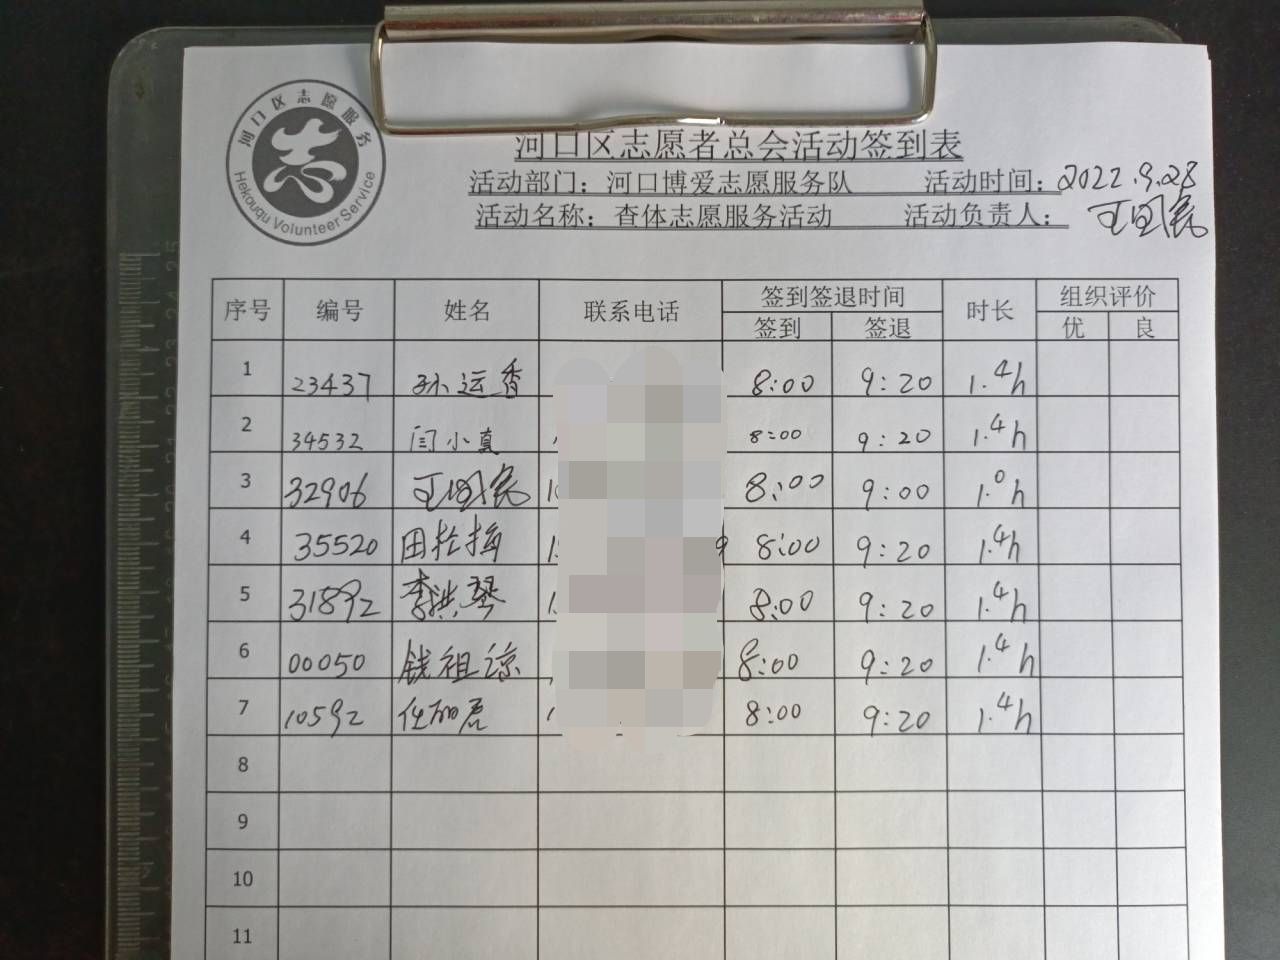 河口区志愿服务
Hekouqu Volunteer Service
河口区志愿者总会活动签到表
活动部门：河口博爱志愿服务队 活动时间：2022.9.28
活动名称：查体志愿服务活动 活动负责人：王国民
序号 编号 姓名 联系电话 签到签退时间 时长 组织评价
签到 签退 优 良
1 23437 孙运香 8:00 9:20 1.4h
2 34532 闫小真 8:00 9:20 1.4h
3 32906 王国民 8:00 9:00 1.0h
4 35520 田 8:00 9:20 1.4h
5 31892 李洪琴 8:00 9:20 1.4h
6 00050 钱祖谅 8:00 9:20 1.4h
7 10592 任 8:00 9:20 1.4h
8
9
10
11